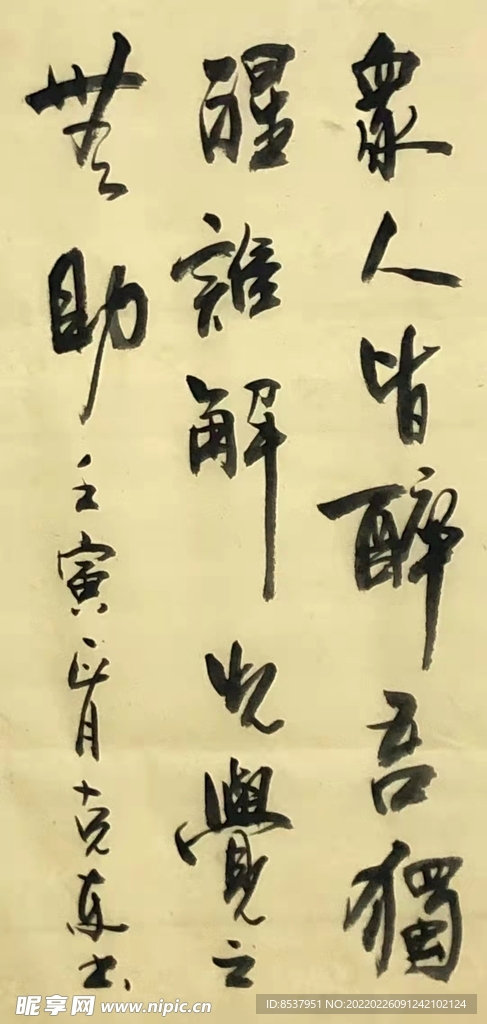 衆人皆醉吾獨
醒誰解先覺之
無助 壬寅正月克东书
昵享网 www.nipic.cn
ID:8537951 NO:20220226091242102124